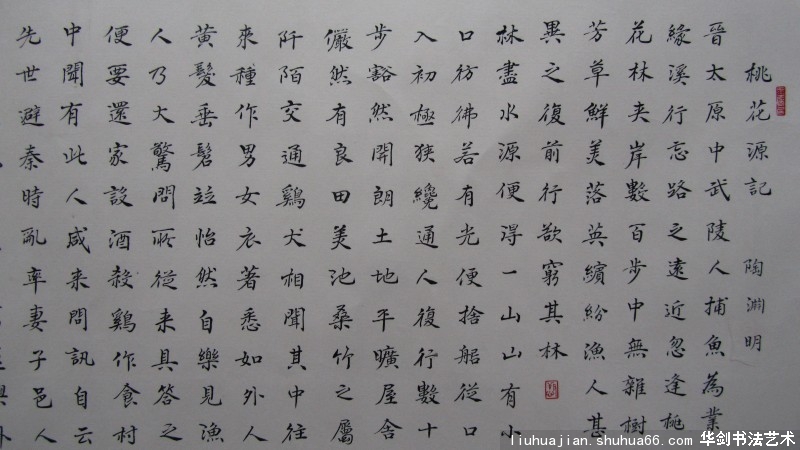 桃花源記 陶淵明
晉太原中武陵人捕魚為業
緣溪行忘路之遠近忽逢桃
花林夾岸數百步中無雜樹
芳草鮮美落英繽紛漁人甚
異之復前行欲窮其林
林盡水源便得一山山有小
口彷彿若有光便捨船從口
入初極狹纔通人復行數十
步豁然開朗土地平曠屋舍
儼然有良田美池桑竹之屬
阡陌交通鷄犬相聞其中往
來種作男女衣著悉如外人
黃髮垂髫竝怡然自樂見漁
人乃大驚問所從來具答之
便要還家設酒殺鷄作食村
中聞有此人咸来問訊自云
先世避秦時亂率妻子邑人
liuhuajian.shuhua66.com 华剑书法艺术